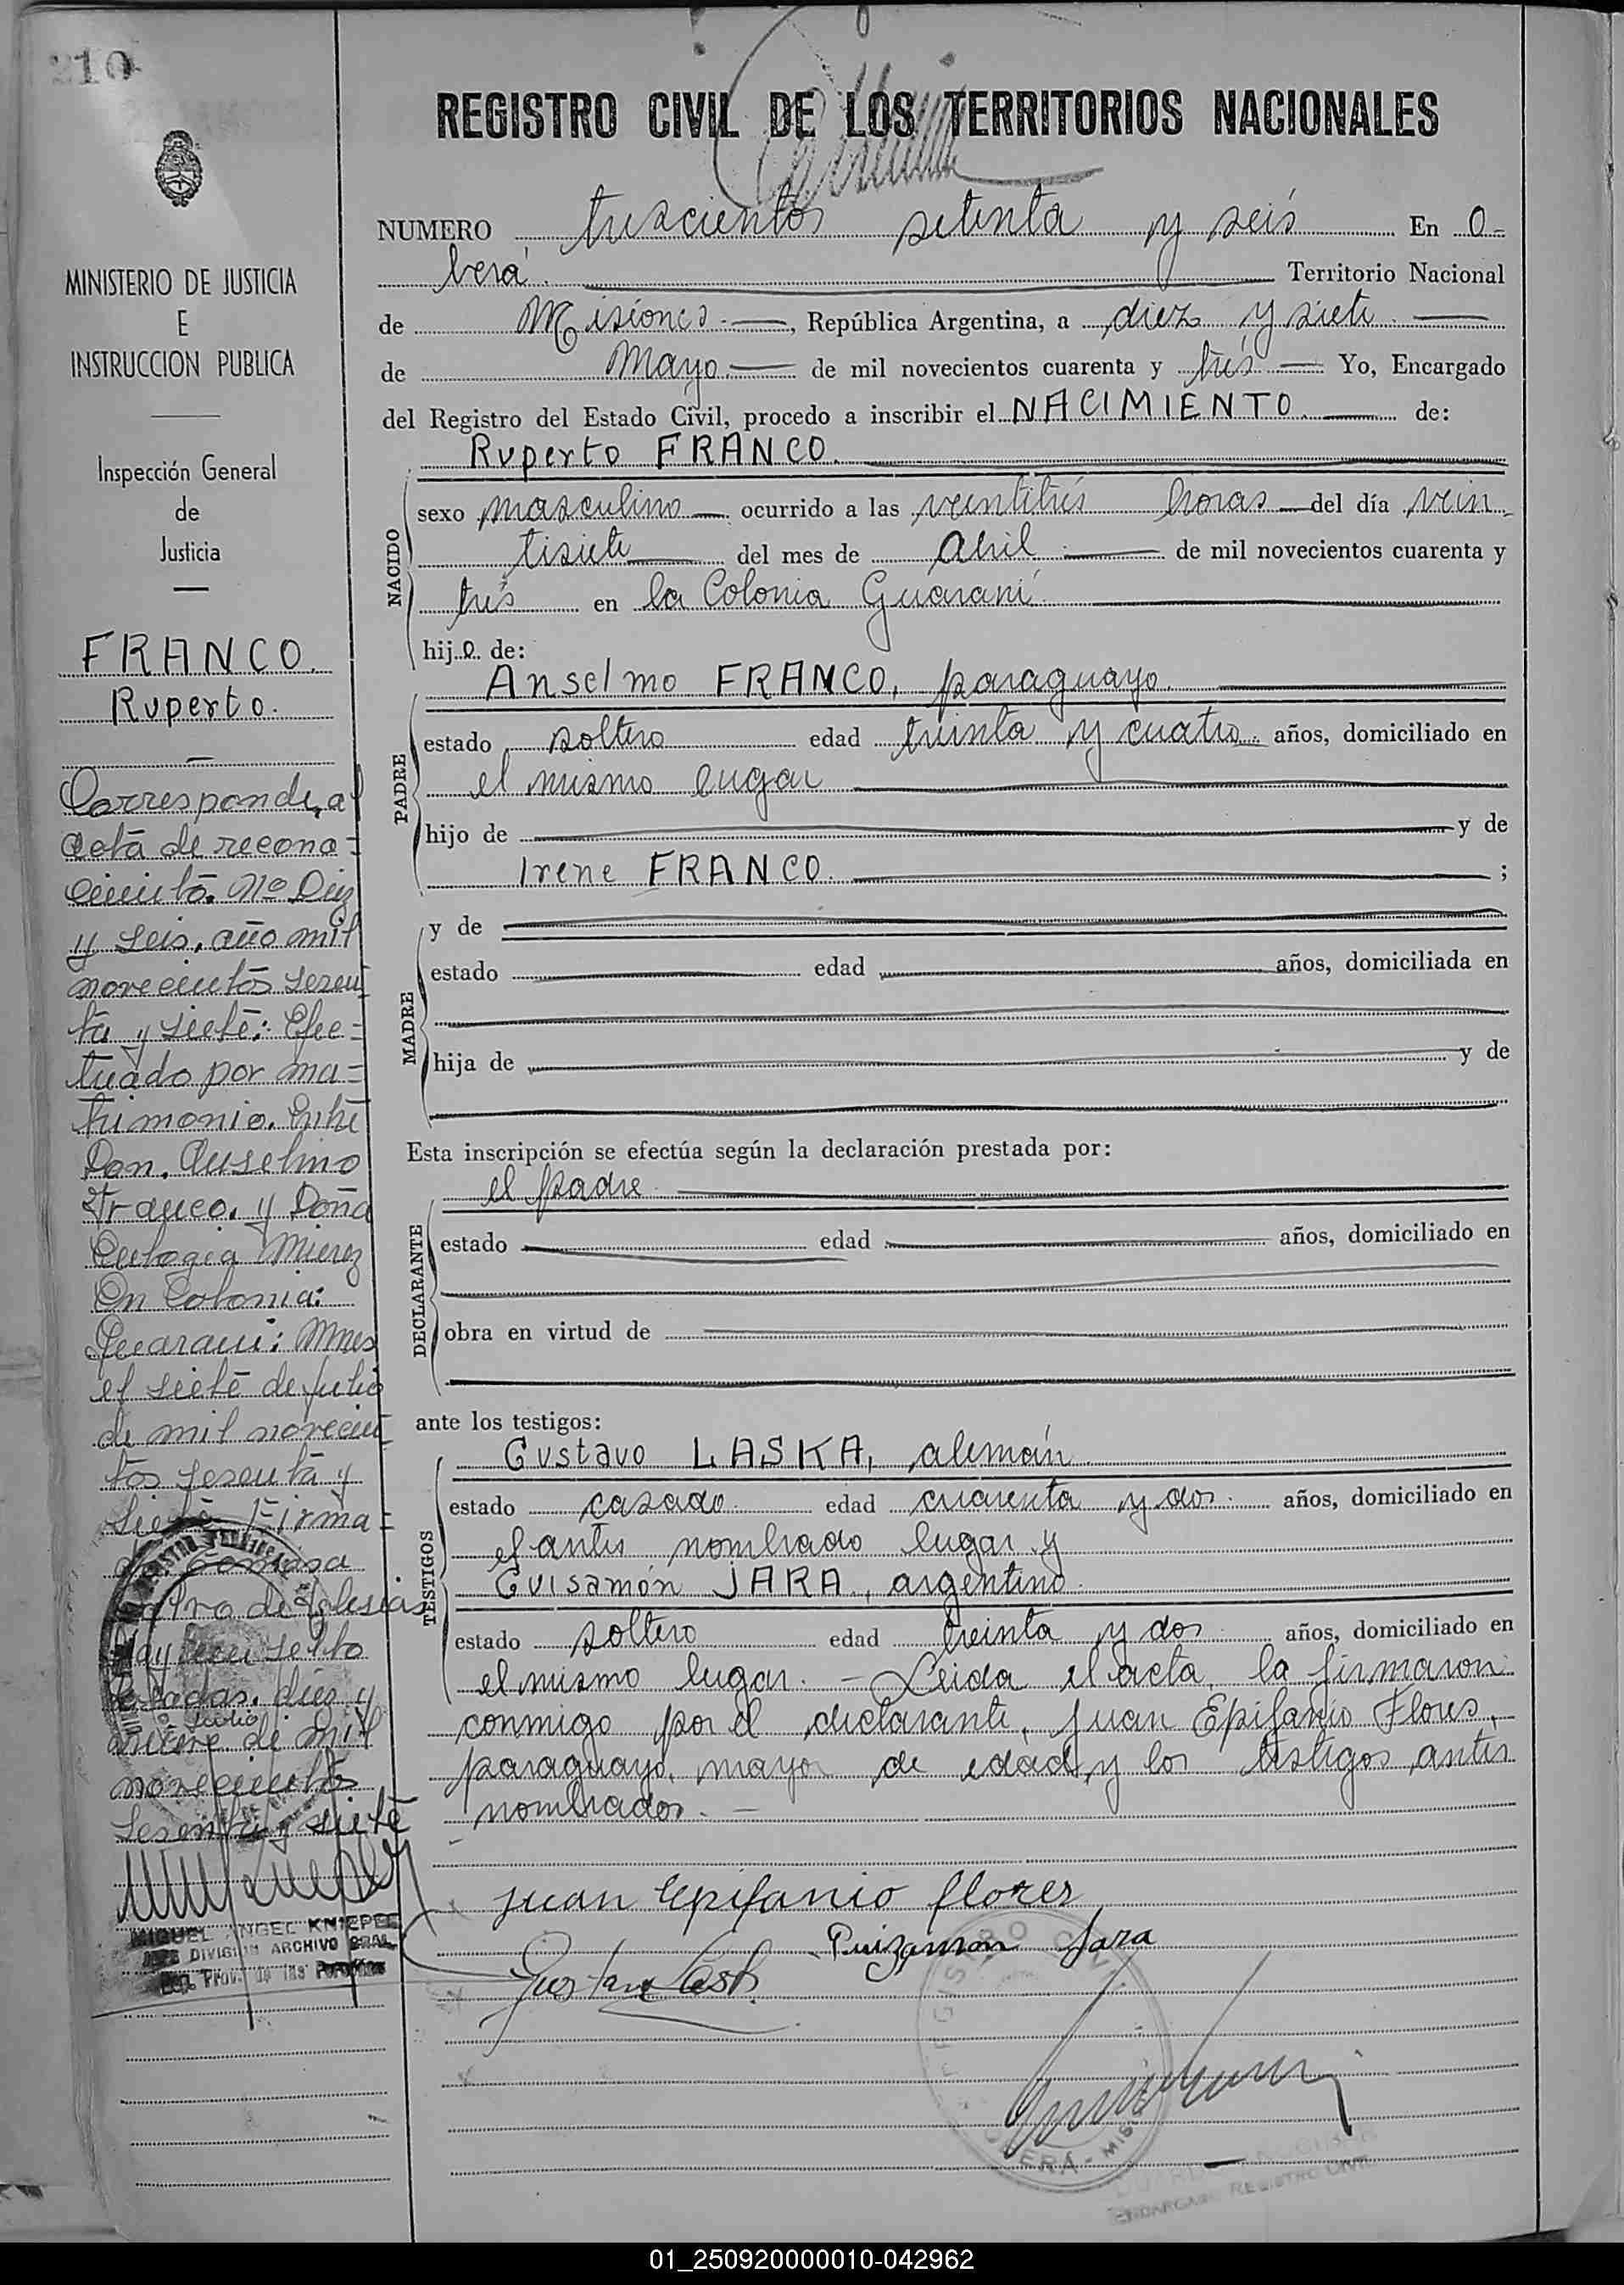 210
REGISTRO CIVIL DE LOS TERRITORIOS NACIONALES
MINISTERIO DE JUSTICIA
E
INSTRUCCION PUBLICA
Inspección General
de
Justicia
FRANCO.
Ruperto.
Corresponde, al
acta de recono=
cimiento. Nº Diez
y seis, año mil
novecientos sesen
ta y siete: Efec=
tuado por ma=
trimonio. Entre
Don. Anselmo
Franco. y Doña
Eulogia Mierez
En Colonia:
Guarani: Mnes
el siete de julio
de mil novecien
tos sesenta y
siete Firma=
de Iglesias
julio
de mil
novecientos
sesenta y siete
MIGUEL ANGEL KNIEPEL
JEFE DIVISION ARCHIVO GRAL.
Reg. Prov. de las Personas
NUMERO trescientos setenta y seis En O-
berá. Territorio Nacional
de Misiones.—, República Argentina, a diez y siete.—
de Mayo — de mil novecientos cuarenta y trés — Yo, Encargado
del Registro del Estado Civil, procedo a inscribir el NACIMIENTO.— de:
Ruperto FRANCO.
NACIDO
sexo masculino — ocurrido a las veintitrés horas — del día vein
tisiete — del mes de Abril.— de mil novecientos cuarenta y
trés en la Colonia Guaraní.
hijo de:
PADRE
Anselmo FRANCO, paraguayo.
estado soltero edad treinta y cuatro. años, domiciliado en
el mismo lugar
hijo de — y de
Irene FRANCO. ;
MADRE
y de
estado edad años, domiciliada en
hija de y de
Esta inscripción se efectúa según la declaración prestada por:
DECLARANTE
el padre
estado edad años, domiciliado en
obra en virtud de
ante los testigos:
TESTIGOS
Gustavo LASKA, alemán
estado casado. edad cuarenta y dos. años, domiciliado en
el antes nombrado lugar y
Guisamón JARA, argentino.
estado soltero edad treinta y dos años, domiciliado en
el mismo lugar. — Leida el acta, la firmaron
conmigo por el declarante, Juan Epifanio Flores,
paraguayo, mayor de edad y los testigos antes
nombrados. —
Juan Epifanio flores
Puizamon Jara
REGISTRO CIVIL
OBERÁ - MIS
ENCARGADO REGISTRO CIVIL
01_250920000010-042962